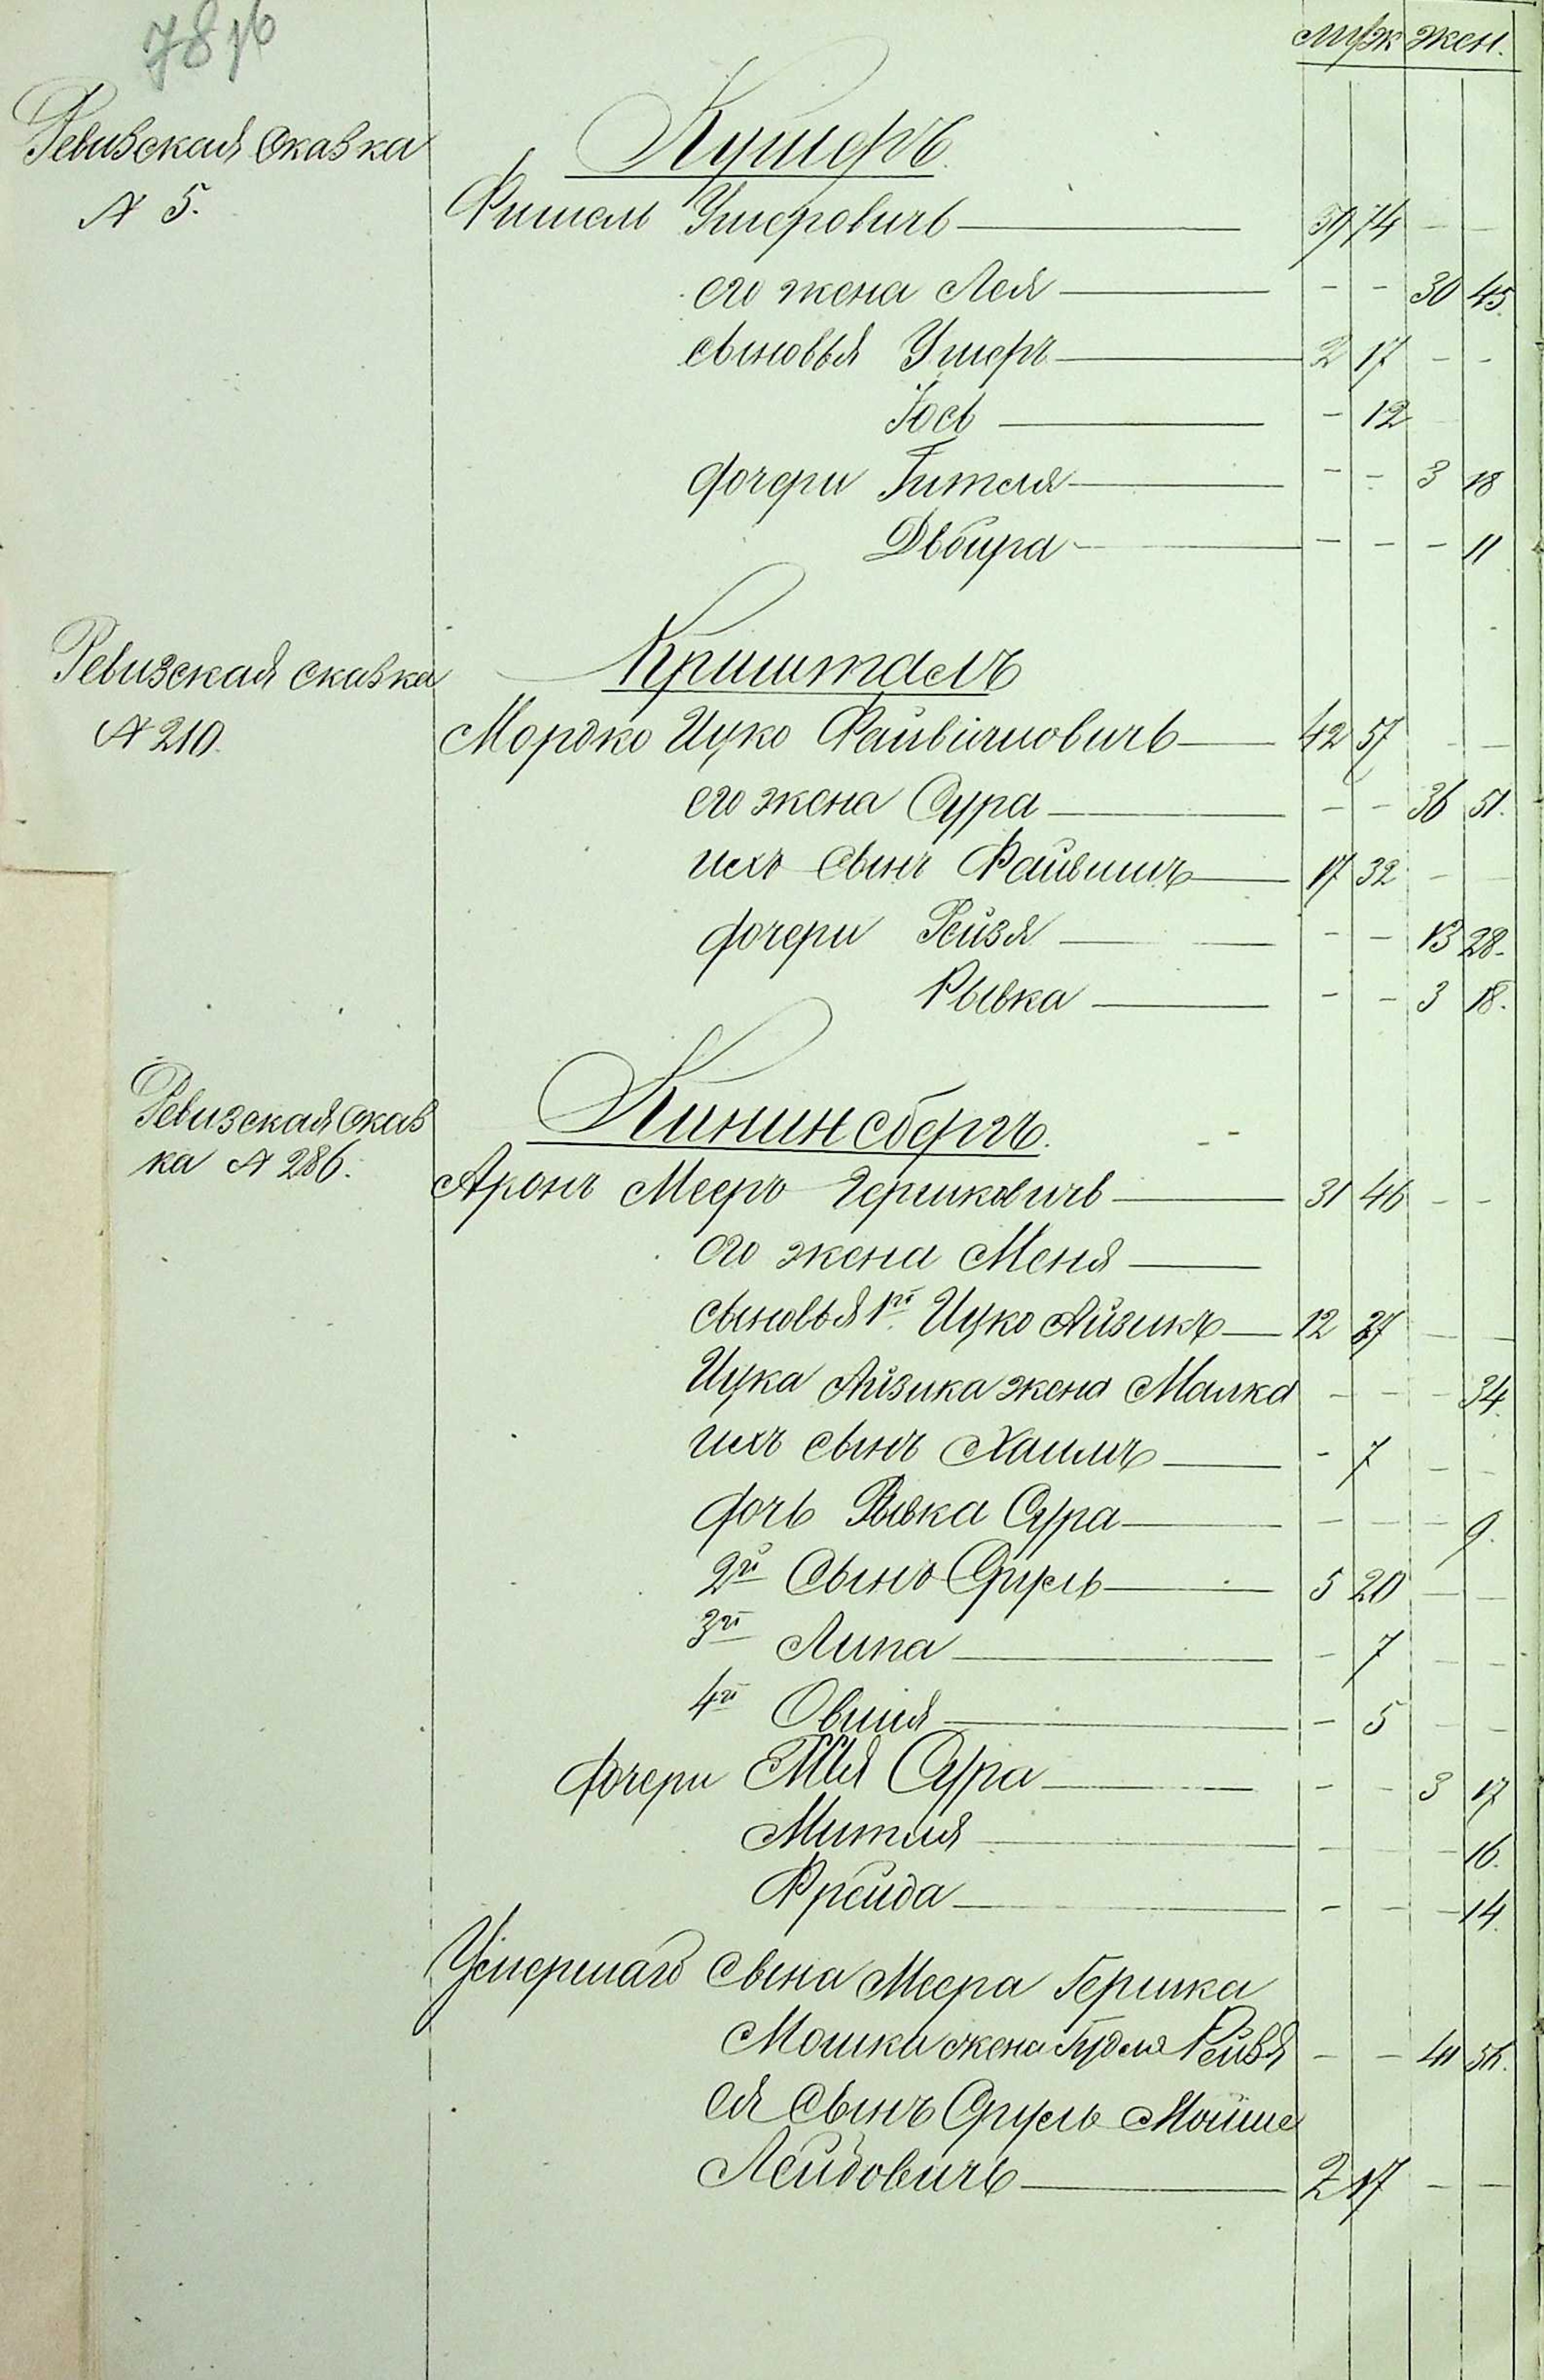 78
муж жен.
Ревизская сказка
N 5.
Кушеръ
Фишель Ушеровичъ — 59 74 - -
его жена Лея — - - 30 45.
сыновья Ушеръ — 2 17 - -
Іось — - 12
дочери Гителя — - - 3 18
Двойра — - - - 11
Ревизская сказка
N 210.
Кришталъ
Мордко Ицко Файвишовичъ — 42 57 - -
его жена Сура — - - 36 51.
ихъ сынъ Файвишъ — 17 32 - -
дочери Рейзя — - - 13 28.
Рывка — - - 3 18.
Ревизская сказ
ка N 286.
Кининсбергъ.
Аронъ Мееръ Гершковичъ — 31 46 - -
его жена Меня —
сыновья 1й Ицко Айзикъ — 12 27 - -
Ицка Айзика жена Малка - - - 34.
ихъ сынъ Хаимъ — - 7 - -
дочь Рывка Сура — - - - 9.
2й Сынъ Сруль — 5 20 - -
3й Липа — - 7 - -
4й Овшія — - 5 - -
дочери Сура — - - 3 17
Митля — - - - 16.
Фрейда — - - - 14.
Умершаго сына Меера Гершка
Мошка жена Гудля Рейзя - - 41 56.
ея Сынъ Сруль Мойше
Лейбовичъ — 2 17 - -